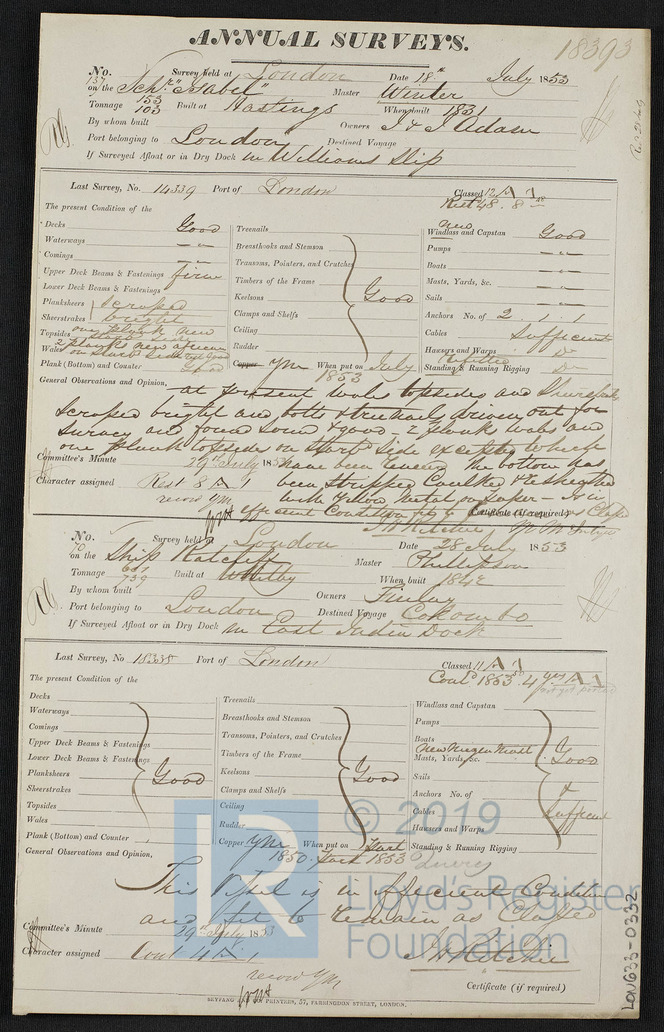 ANNUAL SURVEYS.
18393
No. 157 Survey held at London Date 18th July 1853
on the Schr "Isabel" Master Winter
Tonnage 153 103 Built at Hastings When built 1831
By whom built Owners J & J Adam
Port belonging to London Destined Voyage
If Surveyed Afloat or in Dry Dock in Williams Slip
Last Survey, No. 14339 Port of London Classed 12 A 1
Rest 48. 8
The present Condition of the
Decks Good
Waterways
Comings
Upper Deck Beams & Fastenings firm
Lower Deck Beams & Fastenings
Planksheers scraped
Sheerstrakes bright
Topsides one plank new
Wales 2 planks new
on Starb side
Plank (Bottom) and Counter Good
Treenails
Breasthooks and Stemson
Transoms, Pointers, and Crutches
Timbers of the Frame
Keelsons Good
Clamps and Shelfs
Ceiling
Rudder
Copper YM When put on July
1853
new
Windlass and Capstan Good
Pumps
Boats
Masts, Yards, &c.
Sails
Anchors No. of 2. 1. 1
Cables Sufficient
Hausers and Warps Do
Standing & Running Rigging Do
General Observations and Opinion, at present wales topsides and
scraped bright and bolts & treenails driven out for
survey and found sound & good - 2 planks wales and
one plank topside on Starb side excepted which
Committee's Minute 29th July 1853 have been renewed The bottom has
Character assigned Rest 8 A 1 been stripped Caulked &
record YM with Yellow Metal on paper - is in
efficient Condition
Certificate (if required)
No. 70 Survey held at London Date 28 July 1853
on the Ship Ratcliff Master Phillipson
Tonnage 739 Built at Whitby When built 1842
By whom built Owners Finlay
Port belonging to London Destined Voyage Colombo
If Surveyed Afloat or in Dry Dock in East India Dock
Last Survey, No 18338 Port of London Classed 11 A 1
Contd 1853. 4 yrs A 1
The present Condition of the
Decks
Waterways
Comings
Upper Deck Beams & Fastenings
Lower Deck Beams & Fastenings
Planksheers Good
Sheerstrakes
Topsides
Wales
Plank (Bottom) and Counter
Treenails
Breasthooks and Stemson
Transoms, Pointers, and Crutches
Timbers of the Frame
Keelsons Good
Clamps and Shelfs
Ceiling
Rudder
Copper YM When put on Part
1850. Part 1853
Windlass and Capstan
Pumps
Boats
Masts, Yards, &c. Good
Sails &
Anchors No. of
Cables Sufficient
Hausers and Warps
Standing & Running Rigging
General Observations and Opinion,
This Vessel is in efficient Condition
and fit to remain as Classed
Committee's Minute 29th July 1853
Character assigned Cont 4 A 1
record YM
Certificate (if required)
SEYFANG PRINTERS, 57, FARRINGDON STREET, LONDON.
LON633-0332
© 2019
Lloyd's Register
Foundation
LR